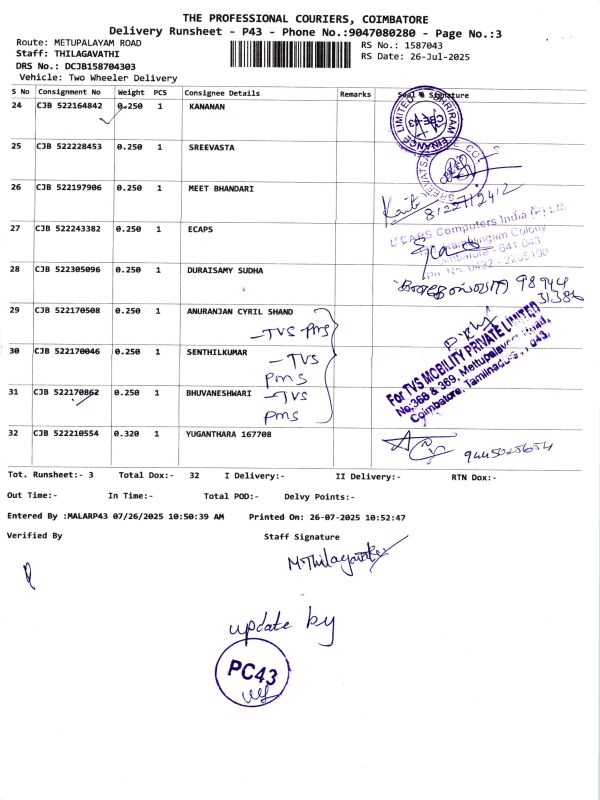 THE PROFESSIONAL COURIERS, COIMBATORE
Delivery Runsheet - P43 - Phone No.:9047080280 - Page No.:3
Route: METUPALAYAM ROAD
RS No.: 1587043
Staff: THILAGAVATHI
RS Date: 26-Jul-2025
DRS No.: DCJB158704303
Vehicle: Two Wheeler Delivery
S No Consignment No Weight PCS Consignee Details Remarks Seal & Signature
24 CJB 522164842 0.250 1 KANANAN
SHRIRAM FINANCE LIMITED
CBE-43
25 CJB 522228453 0.250 1 SREEVASTA
26 CJB 522197906 0.250 1 MEET BHANDARI
8122712412
27 CJB 522243382 0.250 1 ECAPS
ECAPS Computers India (P) Ltd
Coimbatore - 641 043
28 CJB 522305096 0.250 1 DURAISAMY SUDHA
98944
31386
29 CJB 522170508 0.250 1 ANURANJAN CYRIL SHAND
- TVS PMS
30 CJB 522170046 0.250 1 SENTHILKUMAR
- TVS
PMS
For TVS MOBILITY PRIVATE LIMITED
No:368 & 369, Mettupalayam Road,
Coimbatore, Tamilnadu
31 CJB 522170862 0.250 1 BHUVANESHWARI
- TVS
PMS
32 CJB 522210554 0.320 1 YUGANTHARA 167708
9445025654
Tot. Runsheet:- 3 Total Dox:- 32 I Delivery:- II Delivery:- RTN Dox:-
Out Time:- In Time:- Total POD:- Delvy Points:-
Entered By :MALARP43 07/26/2025 10:50:39 AM Printed On: 26-07-2025 10:52:47
Verified By Staff Signature
M.Thilagavathi
update by
PC43